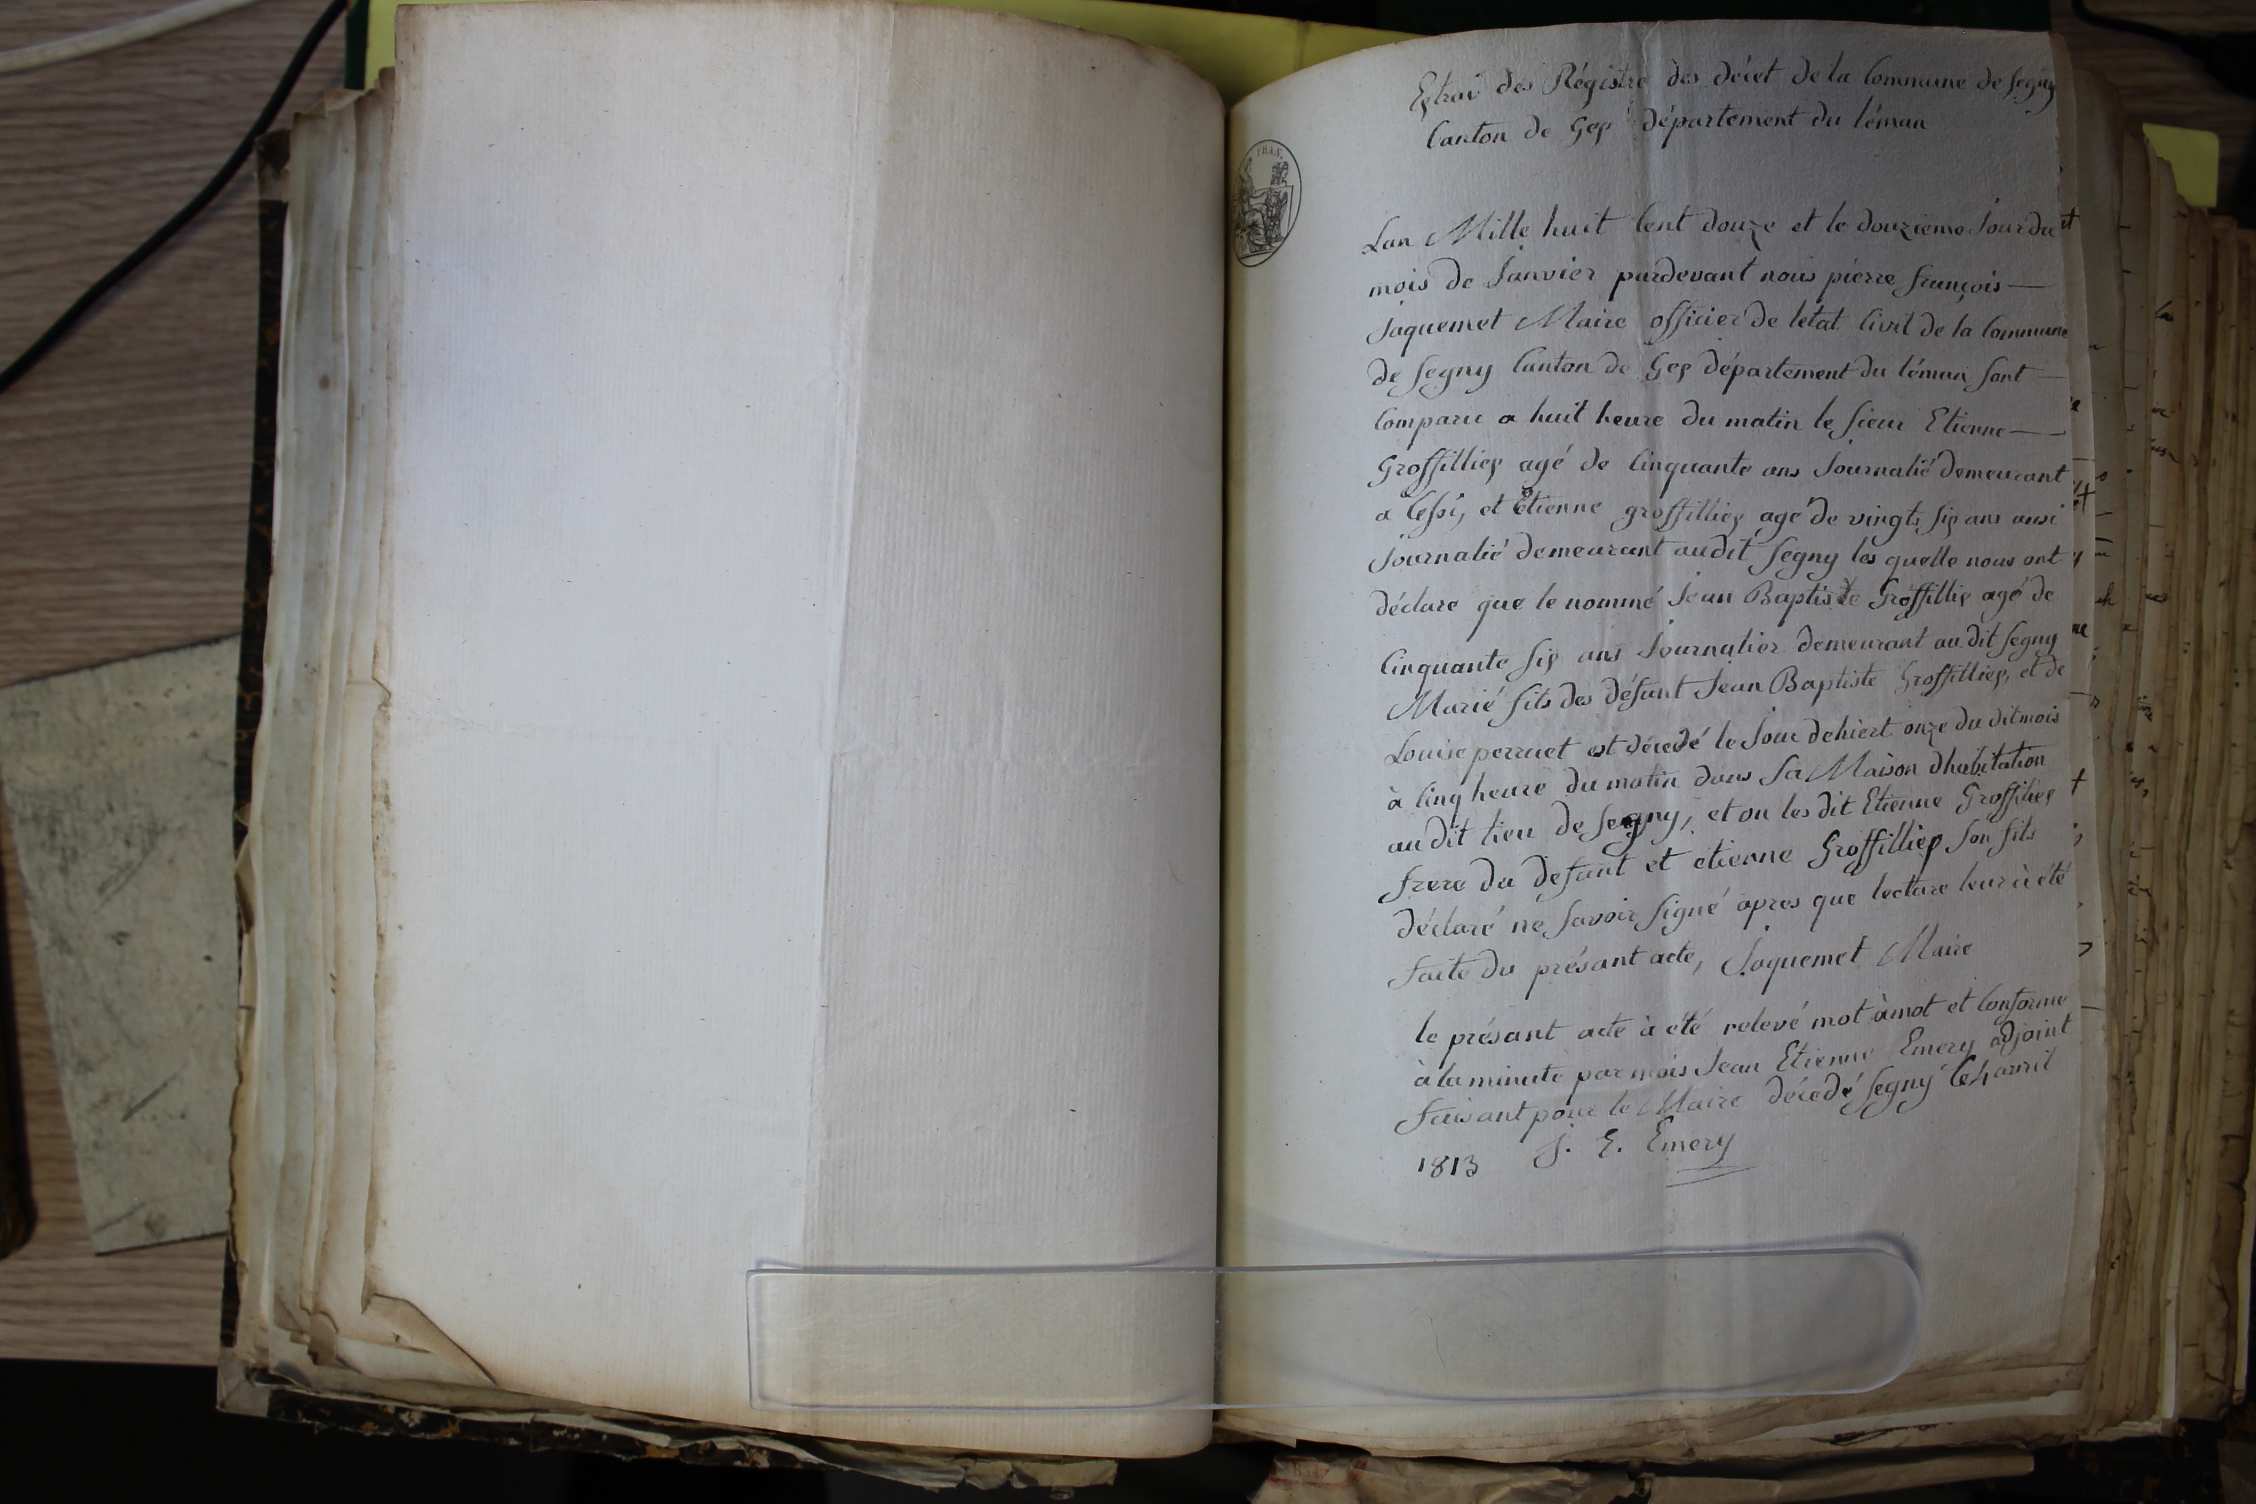 Extrai des Régistre des décet de la Commune de Segny
Canton de Gex département du léman
FRAN.
Lan Mille huit Cent douze et le douzieme Jour du
mois de Janvier pardevant nous pierre françois
Jaquemet Maire officier de létat Civil de la Commune
de Segny Canton de Gex département du léman sont
Comparu a huit heure du matin le sieur Etienne
Groffilliex agé de Cinquante ans Journalié demeurant
a Cessi, et Etienne groffilliex agé de vingt six ans ausi
Journalié demeurant audit Segny les quelle nous ont
déclare que le nommé Jean Baptiste Groffillix agé de
Cinquante six ans Journalier demeurant au dit Segny
Marié fils des défunt Jean Baptiste Groffilliex, et de
Louise perruet est décedé le Jour dehiert onze du dit mois
à Cinq heure du matin dans sa Maison dhabitation
au dit lieu de Segny, et on les dit Etienne Groffiliex
frere du defunt et etienne Groffilliex son fils
déclaré ne savoir signé apres que lecture leur à été
faite du présant acte, Jaquemet Maire
le présant acte à été relevé mot à mot et Conforme
à la minute par mois Jean Etienne Emery adjoint
faisant pour le Maire décedé Segny le 4 avril
1813 J. E. Emery